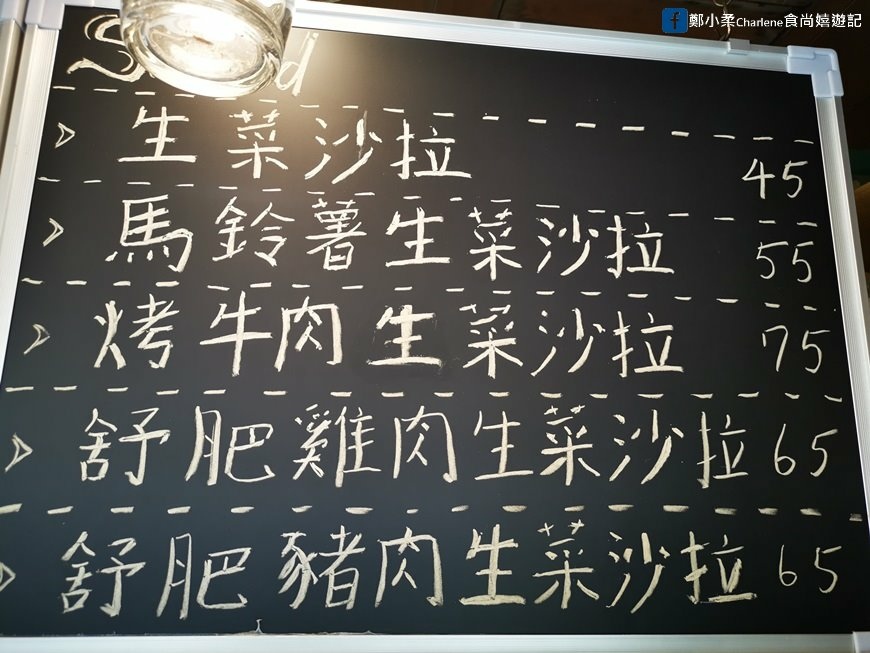 鄭小柔Charlene食尚嬉遊記
生菜沙拉 45
馬鈴薯生菜沙拉 55
烤牛肉生菜沙拉 75
舒肥雞肉生菜沙拉 65
舒肥豬肉生菜沙拉 65